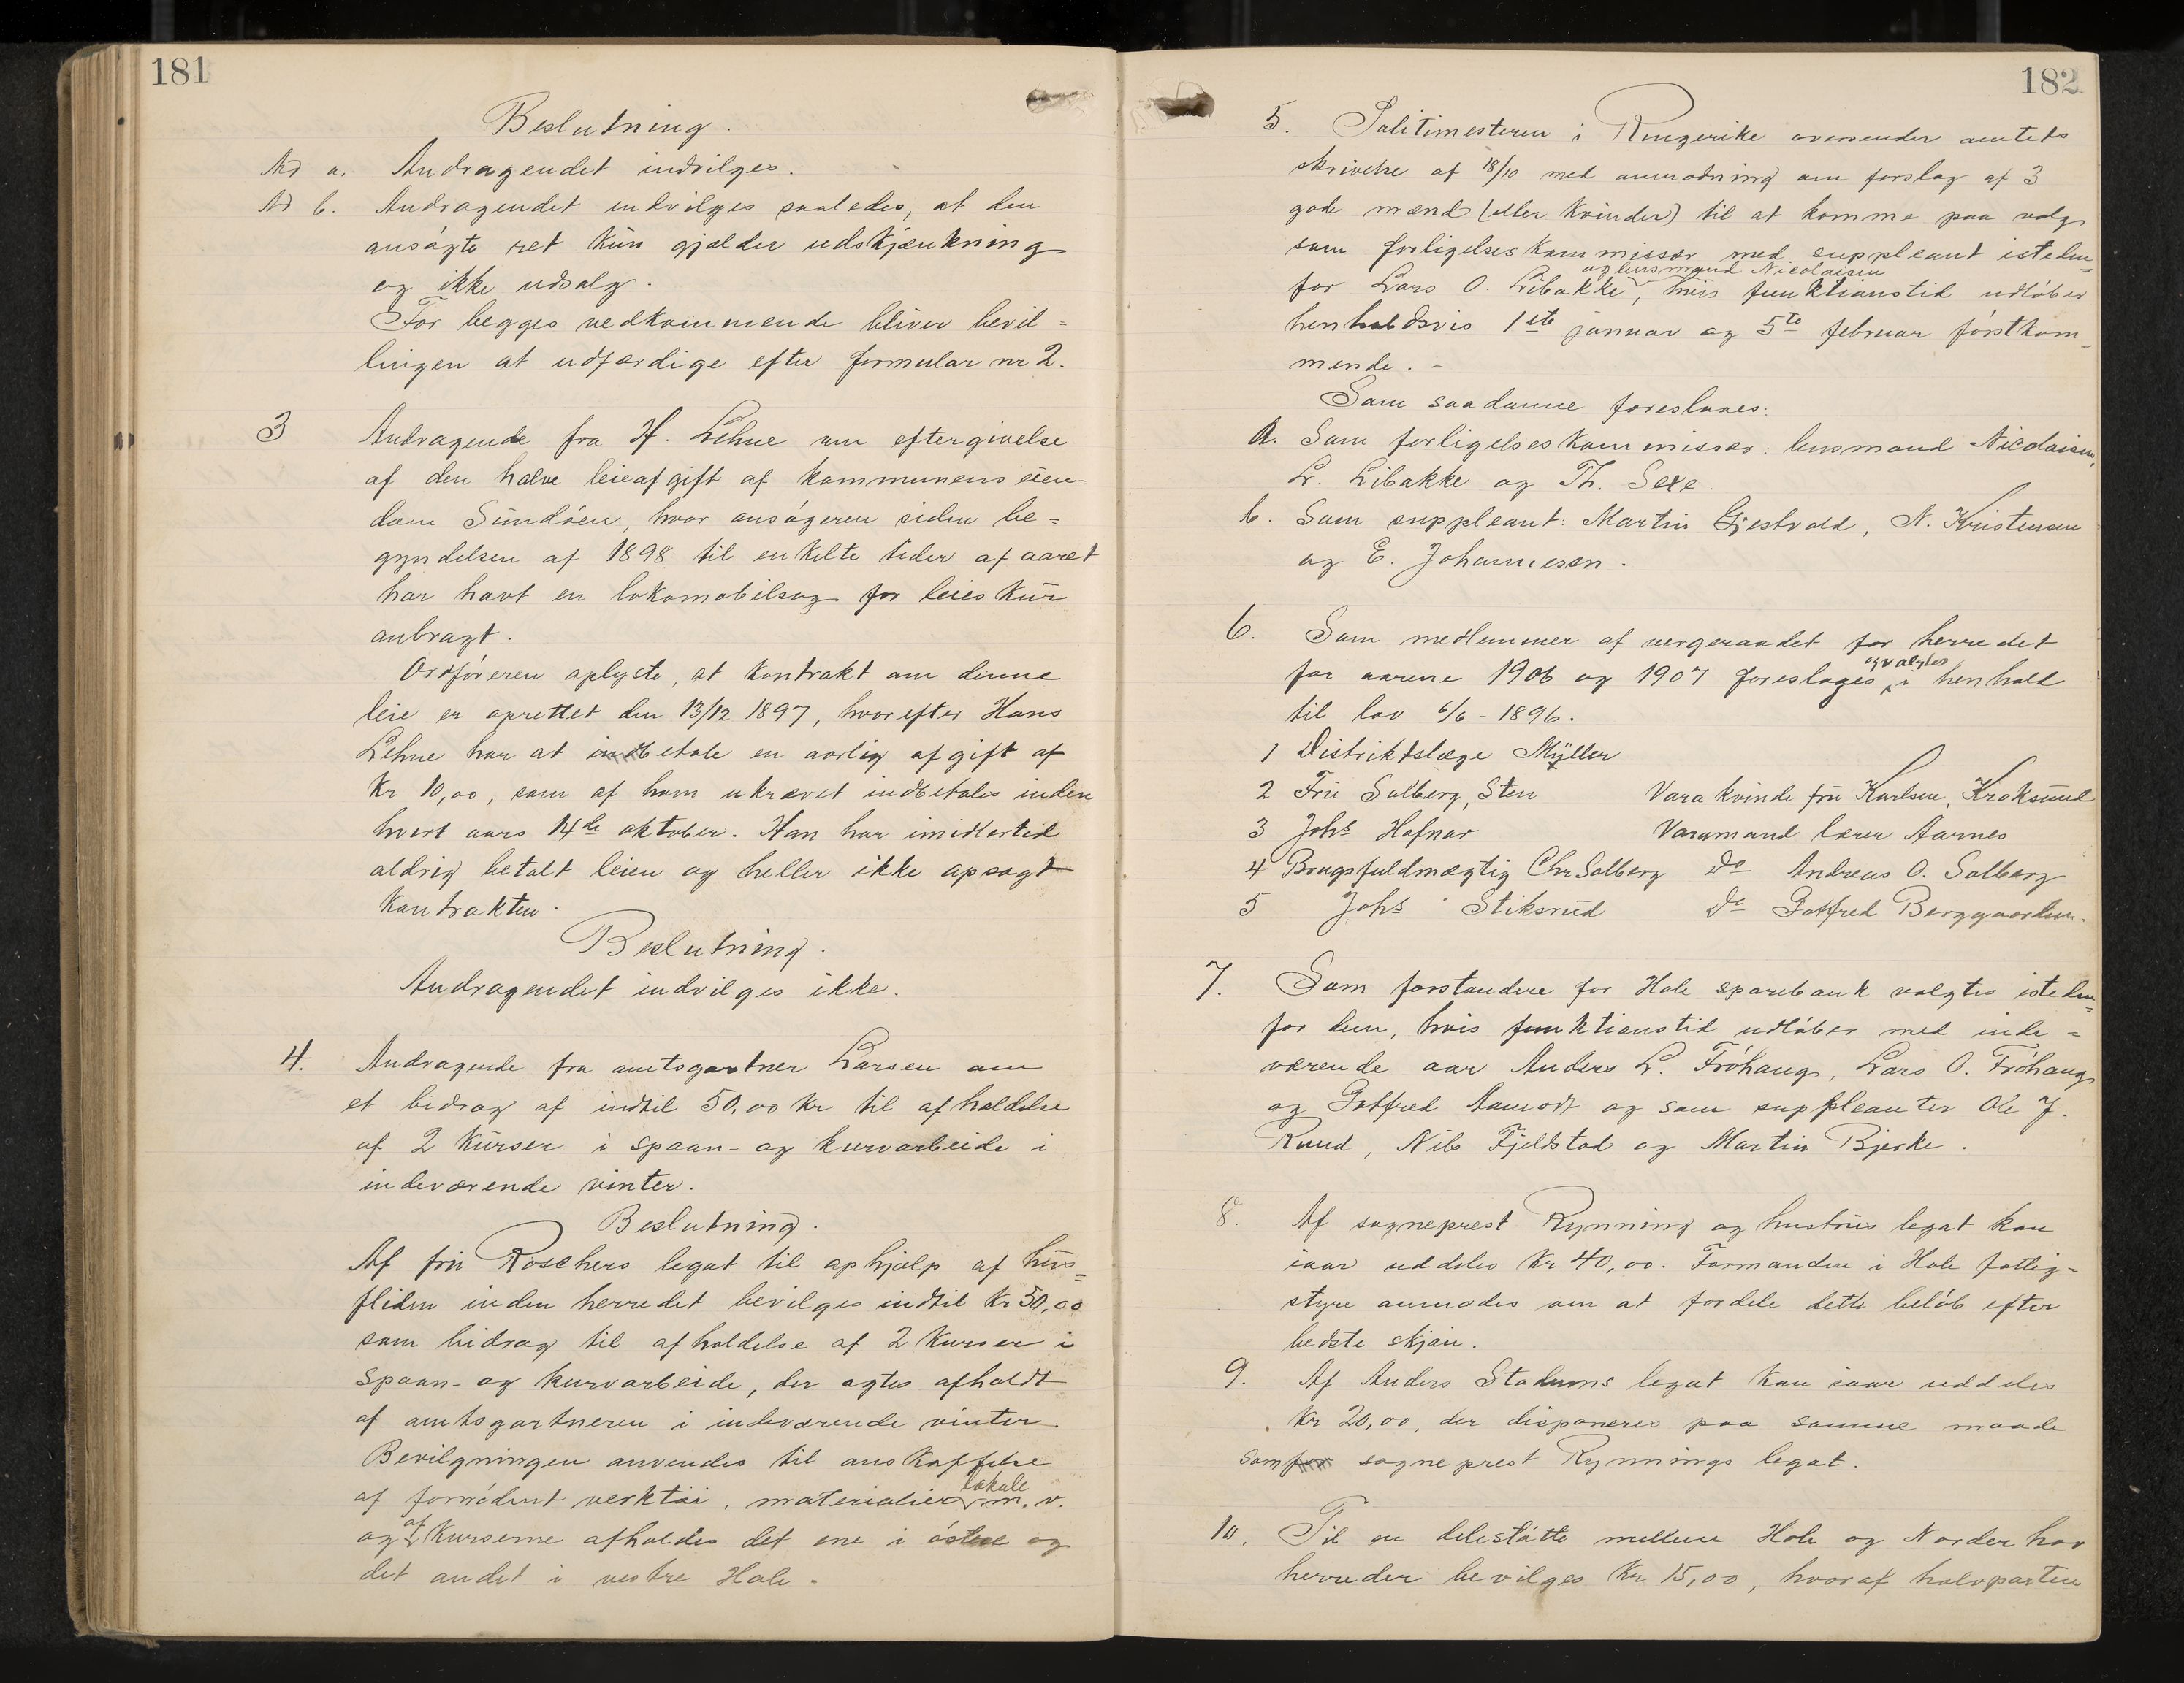 181
Beslutning.
Ad a. Andragendet indvilges.
Ad b. Andragendet indvilges saaledes, at den
ansøgte ret kun gjælder udskjænkning
og ikke udsalg.
For begges vedkommende bliver bevil=
lingen at udfærdige efter formular nr 2.
3 Andragende fra H. Lehne om eftergivelse
af den halve leieafgift af kommunens eien-
dom Sundøen, hvor ansøgeren siden be=
gyndelsen af 1898 til enkelte tider af aaret
har havt en lokomobilsag for leieskur
anbragt.
Ordføreren oplyste, at kontrakt om denne
leie er oprettet den 13/12 1897, hvorefter Hans
Lehne har at indbetale en aarlig afgift af
Kr 10,00, som af ham ukrævet indbetales inden
hvert aars 14de oktober. Han har imidlertid
aldrig betalt leien og heller ikke opsagt
kontrakten.
Beslutning.
Andragendet indvilges ikke.
4. Andragende fra amtsgartner Larsen om
et bidrag af indtil 50,00 kr til afholdelse
af 2 kurser i spaan- og kurvarbeide i
indeværende vinter.
Beslutning.
Af fru Roschers legat til ophjælp af hus=
fliden inden herredet bevilges indtil Kr 50,00
som bidrag til afholdelse af 2 kurser i
spaan- og kurvarbeide, der agtes afholdt
af amtsgartneren i indeværende vinter.
Bevilgningen anvendes til anskaffelse
af fornødent verktøi, materialier lokale m. v.
og at kurserne afholdes det ene i østre og
det andet i vestre Hole.
182
5. Politimesteren i Ringerike oversender amtets
skrivelse af 18/10 med anmodning om forslag af 3
gode mænd (eller kvinder) til at komme paa valg
som forligelseskommissær med suppleant isteden=
og lensmand Nicolaisen
for Lars O. Libakke, hvis funktionstid udløber
henholdsvis 1ste januar og 5te februar førstkom-
mende. -
Som saadanne foreslaaes:
a. Som forligelseskommissær: lensmand Nicolaisen,
L. Libakke og Th. Sexe.
b. Som suppleant: Martin Gjestvold, N. Kristensen
og E. Johannesen.
6. Som medlemmer af vergeraadet for herredet
for aarene 1906 og 1907 foreslages og valgtes i henhold
til lov 6/6 - 1896.
1 Distriktslæge Müller
2 Fru Solberg, Sten Varakvinde fru Karlsen, Kroksund
3 Johs Hafnor Varamand lærer Aarnes
4 Brugsfuldmægtig Chr Solberg do Andreas O. Solberg
5 Johs Stiksrud do Gotfred Borggaarden.
7. Som forstandere for Hole sparebank valgtes isteden=
for dem, hvis funktionstid udløber med inde=
værende aar Anders L. Frøhaug, Lars O. Frøhaug
og Gotfred Aamodt og som suppleanter Ole J.
Ruud, Nils Fjeldstad og Martin Bjerke.
8. Af sogneprest Rynning og hustrus legat kan
iaar uddeles Kr 40,00. Formanden i Hole fattig-
styre anmodes om at fordele dette beløb efter
bedste skjøn.
9. Af Anders Stadums legat kan iaar uddeles
Kr 20,00, der disponeres paa samme maade
som for sogneprest Rynnings legat.
10. Til en delestøtte mellem Hole og Norderhov
herreder bevilges Kr 15,00, hvoraf halvparten